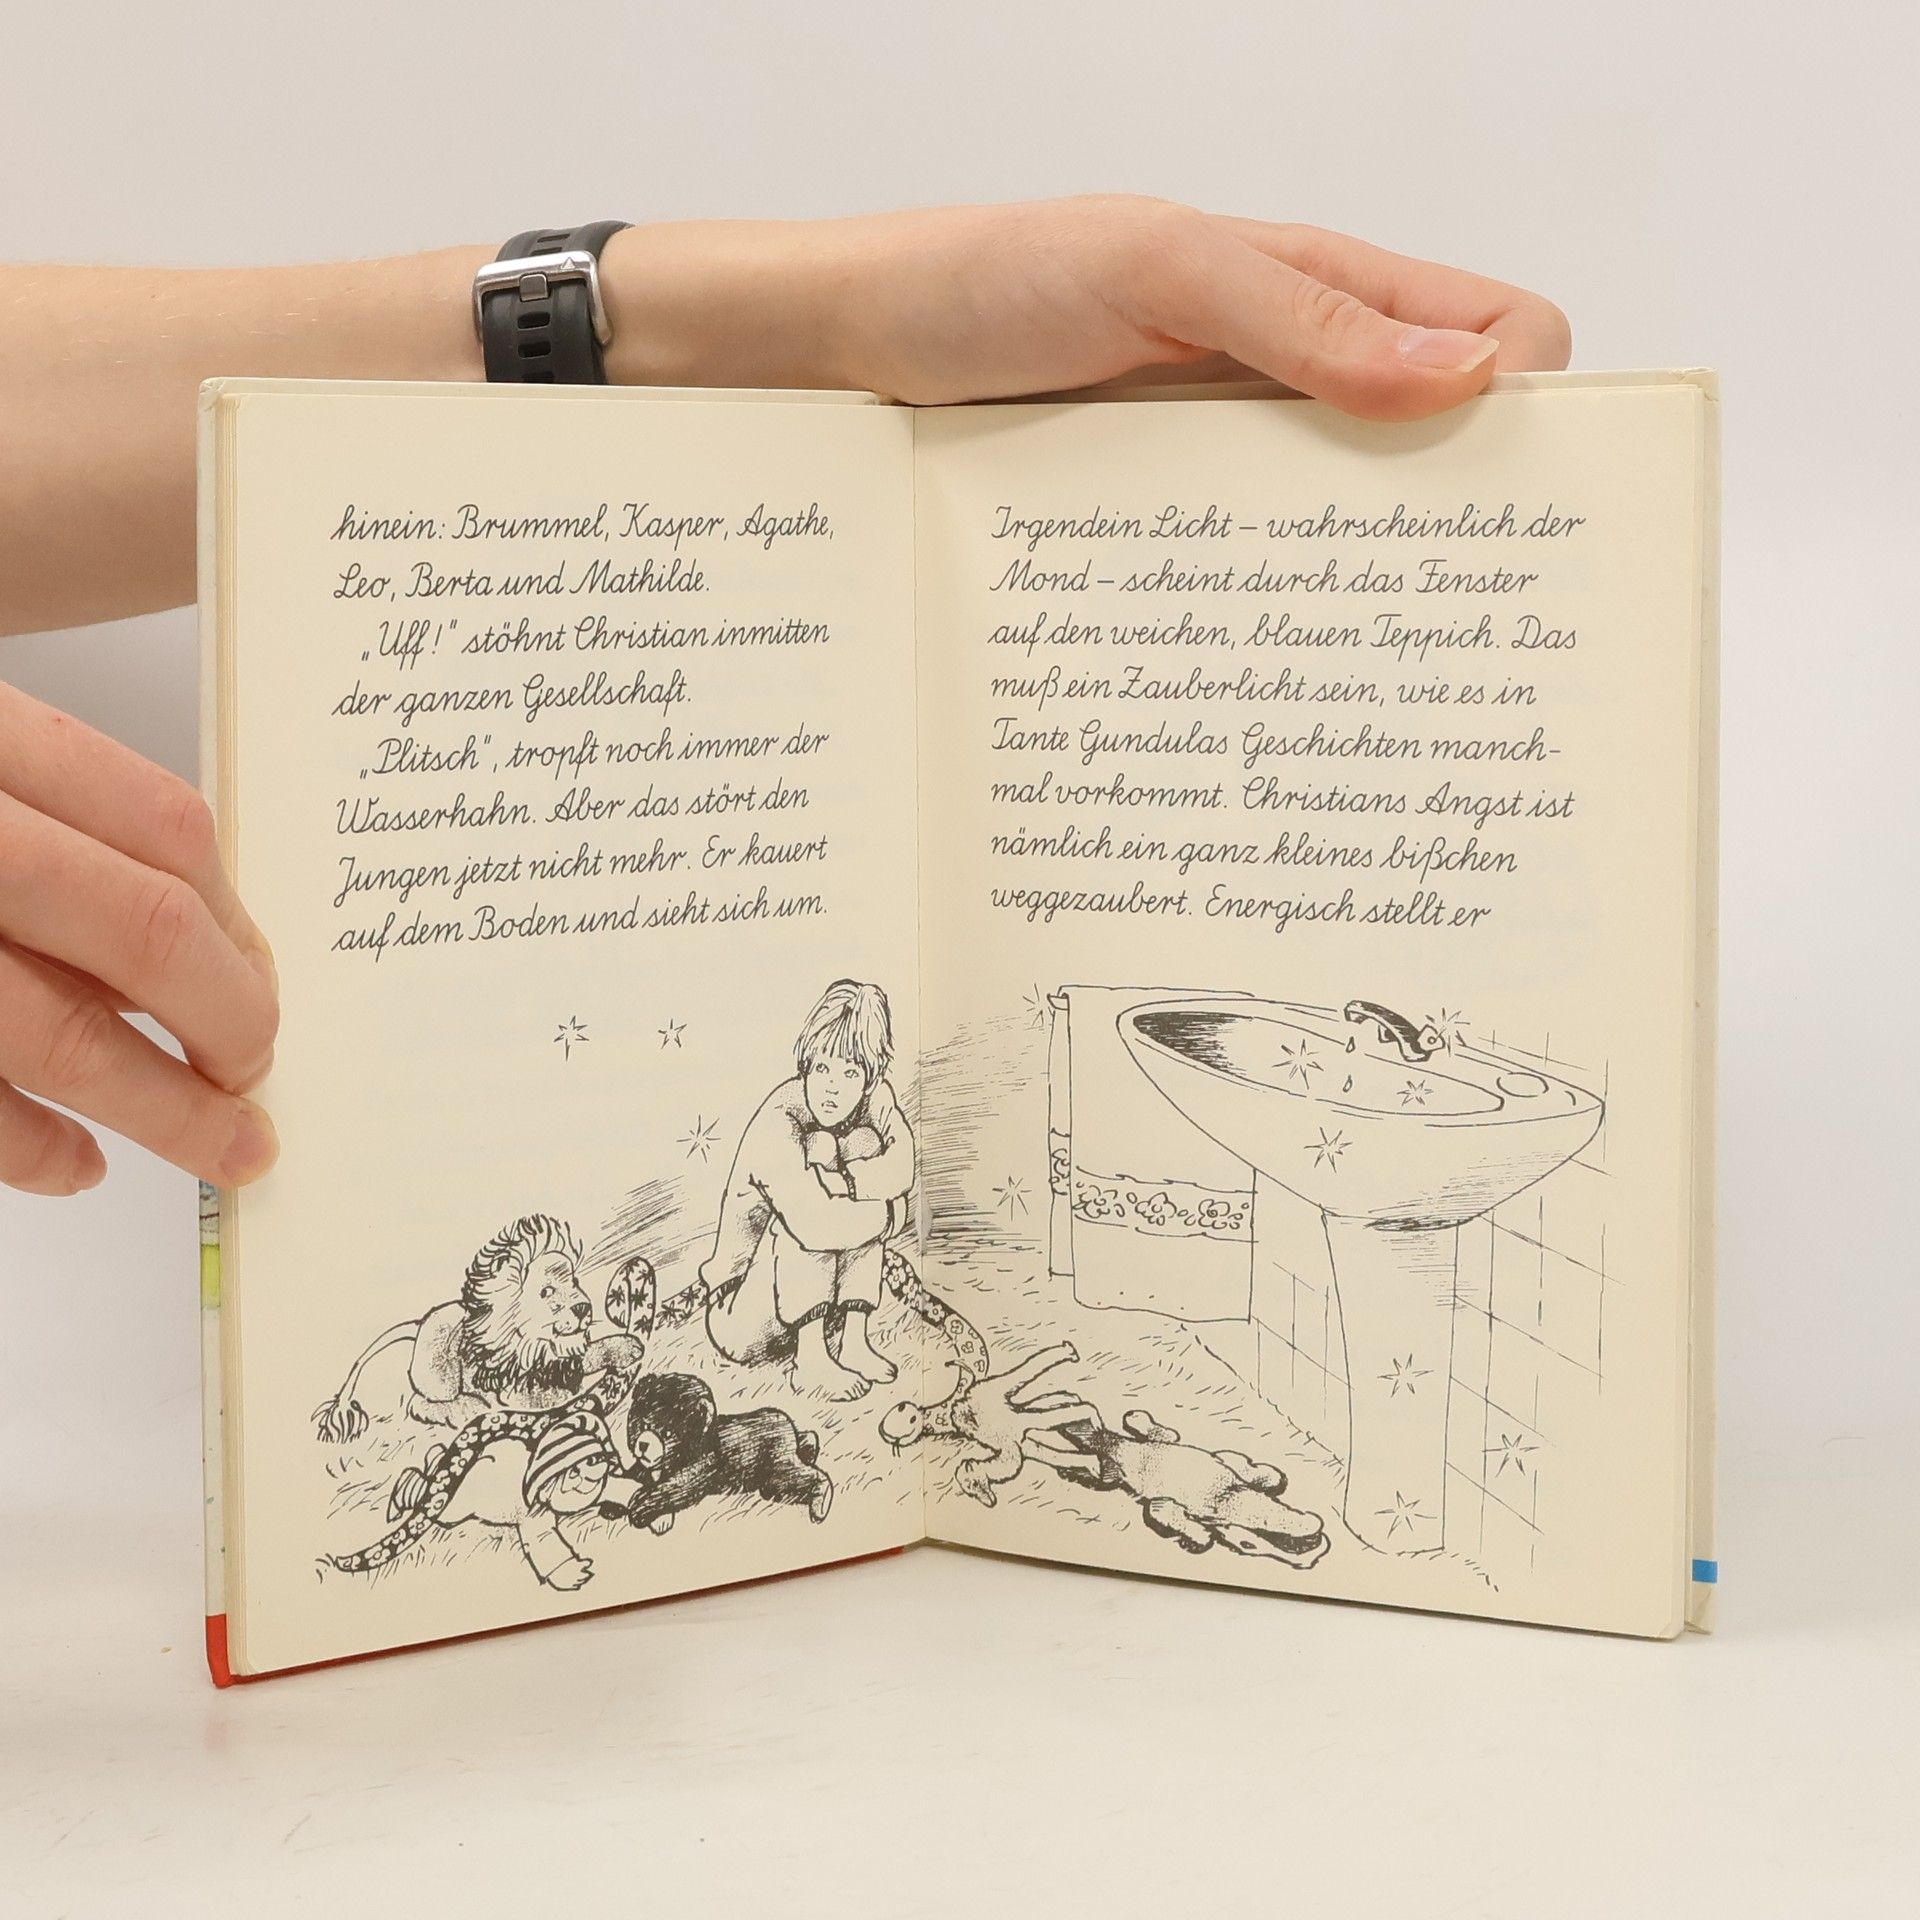 hinein: Brummel, Kasper, Agathe,
Leo, Berta und Mathilde.
„Uff!" stöhnt Christian inmitten
der ganzen Gesellschaft.
„Plitsch", tropft noch immer der
Wasserhahn. Aber das stört den
Jungen jetzt nicht mehr. Er kauert
auf dem Boden und sieht sich um.
Irgendein Licht – wahrscheinlich der
Mond – scheint durch das Fenster
auf den weichen, blauen Teppich. Das
muß ein Zauberlicht sein, wie es in
Tante Gundulas Geschichten manch-
mal vorkommt. Christians Angst ist
nämlich ein ganz kleines bißchen
weggezaubert. Energisch stellt er